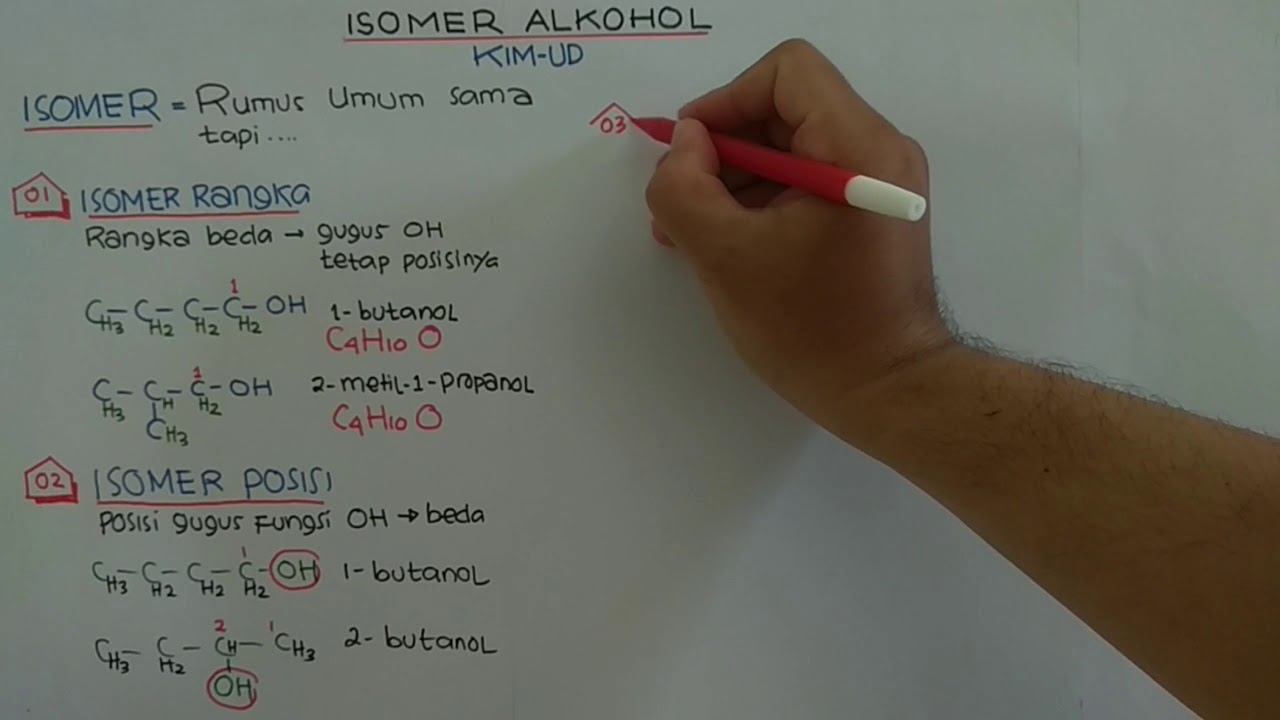 ISOMER ALKOHOL
KIM-UD
ISOMER = Rumus Umum sama
tapi....
01 ISOMER Rangka
Rangka beda → gugus OH
tetap posisinya
1
CH3 – CH2 – CH2 – CH2 – OH 1-butanol
C4H10O
1
CH3 – CH – CH2 – OH 2-metil-1-propanol
CH3
C4H10O
02 ISOMER POSISI
Posisi gugus Fungsi OH → beda
1
CH3 – CH2 – CH2 – CH2 – OH 1-butanol
2 1
CH3 – CH2 – CH – CH3 2-butanol
OH
03